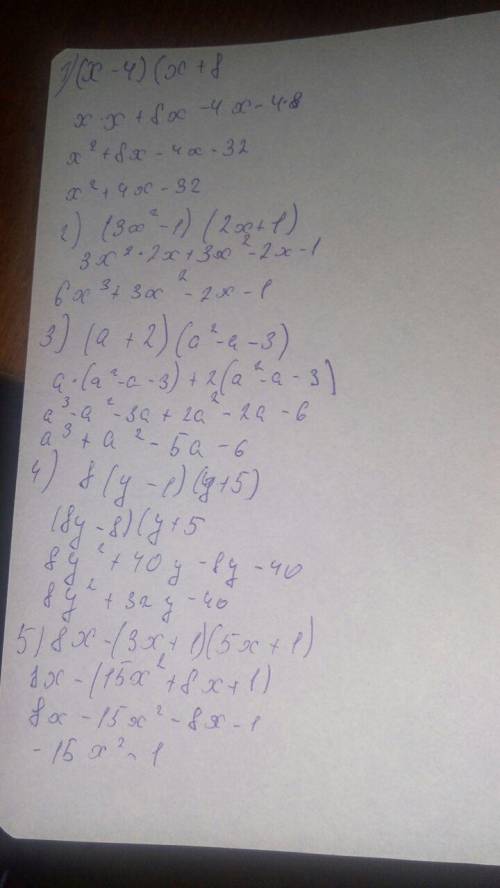 1) (x - 4) (x + 8
x · x + 8x - 4 x - 4·8
x² + 8x - 4x - 32
x² + 4x - 32
2) (3x² - 1) (2x + 1)
3x² · 2x + 3x² - 2x - 1
6x³ + 3x² - 2x - 1
3) (a + 2) (a² - a - 3)
a · (a² - a - 3) + 2 (a² - a - 3)
a³ - a² - 3a + 2a² - 2a - 6
a³ + a² - 5a - 6
4) 8 (y - 1) (y + 5)
(8y - 8) (y + 5
8y² + 40y - 8y - 40
8y² + 32y - 40
5) 8x - (3x + 1) (5x + 1)
8x - (15x² + 8x + 1)
8x - 15x² - 8x - 1
- 15x² - 1